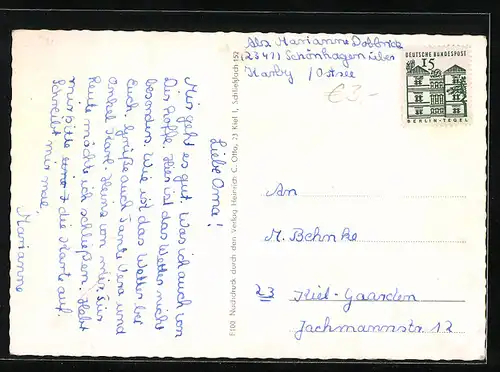 Liebe Oma!
Mir geht es gut. Was ich auch von
Dir hoffe. Hier ist das Wetter nicht
besonders. Wie ist das Wetter bei
Euch. Grüße auch Tante Vera und
Onkel Karl-Heinz von mir. Für
Heute möchte ich schließen. Hebt
mir bitte die Karte auf.
Schreibt mir mal,
Marianne
F103 Nachdruck durch den Verlag Heinrich C. Otto, 23 Kiel 1, Schließfach 152
Abs. Marianne Dobbrick
(2347) Schönhagen über
Karby /Ostsee
€3-
DEUTSCHE BUNDESPOST
15
BERLIN-TEGEL
An
M. Behnke
23 Kiel-Gaarden
Jachmannstr. 12